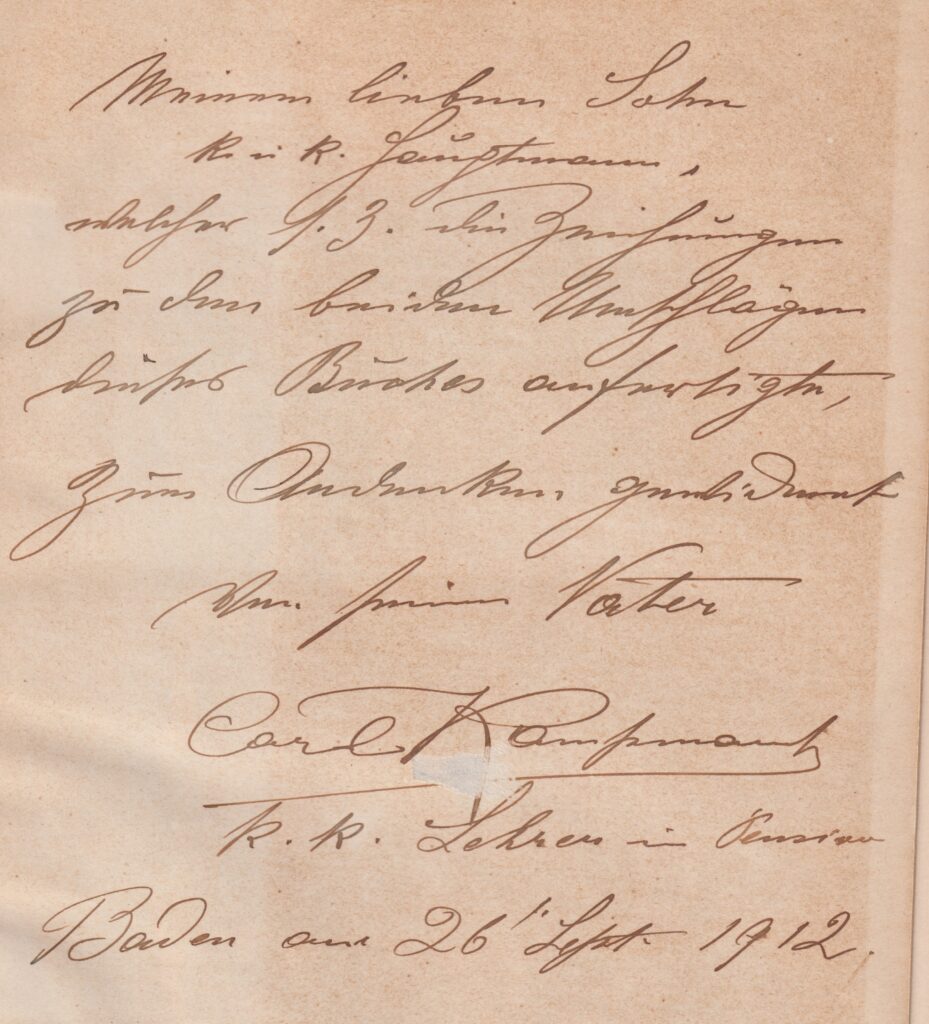 Meinem lieben Sohn
k. u. k. Hauptmann,
welcher s. Z. die Zeichnungen
zu den beiden Umschlägen
dieses Buches anfertigte,
zum Andenken gewidmet
von seinem Vater
Carl Kampmann
k. k. Lehrer in Pension
Baden am 26t. Sept. 1912.